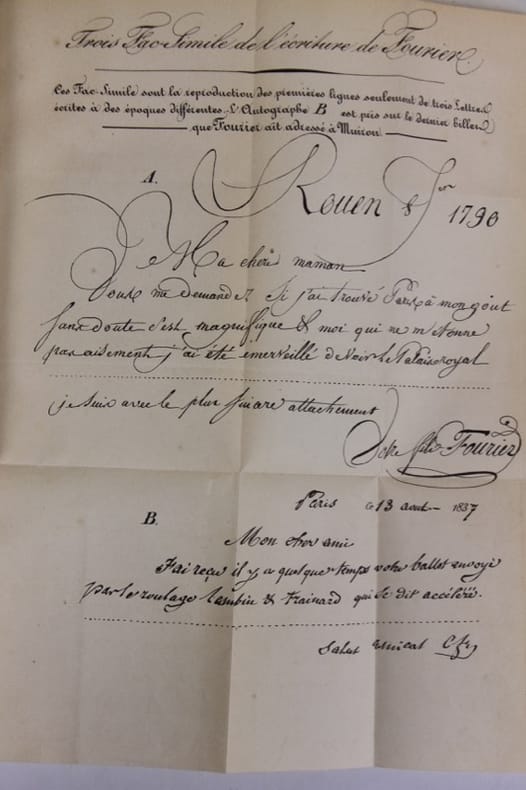 Trois Fac-Simile de l'écriture de Fourier.
Ces Fac-Simile sont la reproduction des premières lignes seulement de trois Lettres
écrites à des époques différentes. L'Autographe B est pris sur le dernier billet
que Fourier ait adressé à Muiron.
A.
Rouen 8 Jer 1790
Ma chère maman
Vous me demandez si j'ai trouvé Paris à mon goût
sans doute c'est magnifique & moi qui ne m'étonne
pas aisement j'ai été émerveillé de voir le Palais royal
je suis avec le plus sincere attachement
Votre fils Fourier
Paris 13 aout 1837
B.
Mon cher ami
J'ai reçu il y a quelque temps votre ballot envoyé
par le roulage Lambin & Trainard qui se dit accéléré.
Salut amical